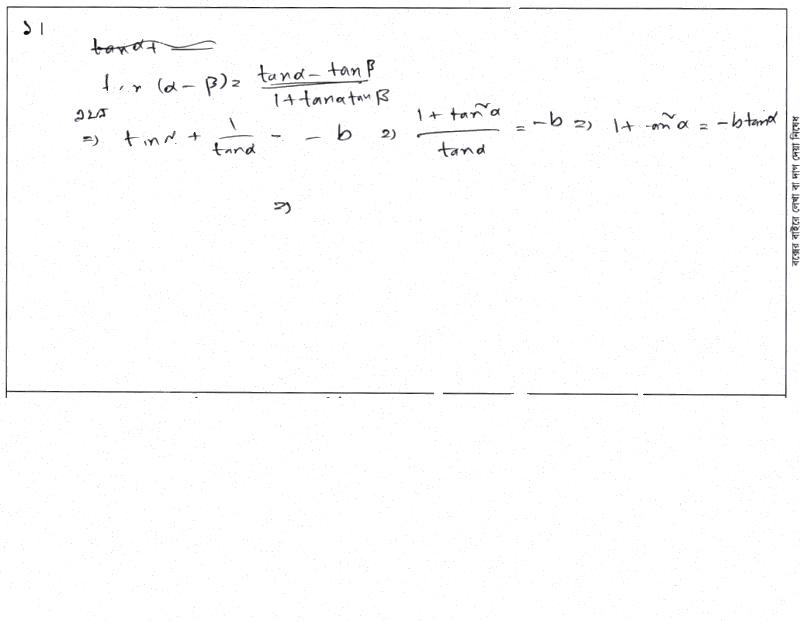 ১।
tan(α − β) = (tanα − tanβ)/(1 + tanα tanβ)
⇒ + 1/tanα = − b ⇒ (1 + tan²α)/tanα = −b ⇒ 1 + tan²α = −b tanα
⇒
বক্সের বাইরে লেখা বা দাগ দেয়া নিষেধ